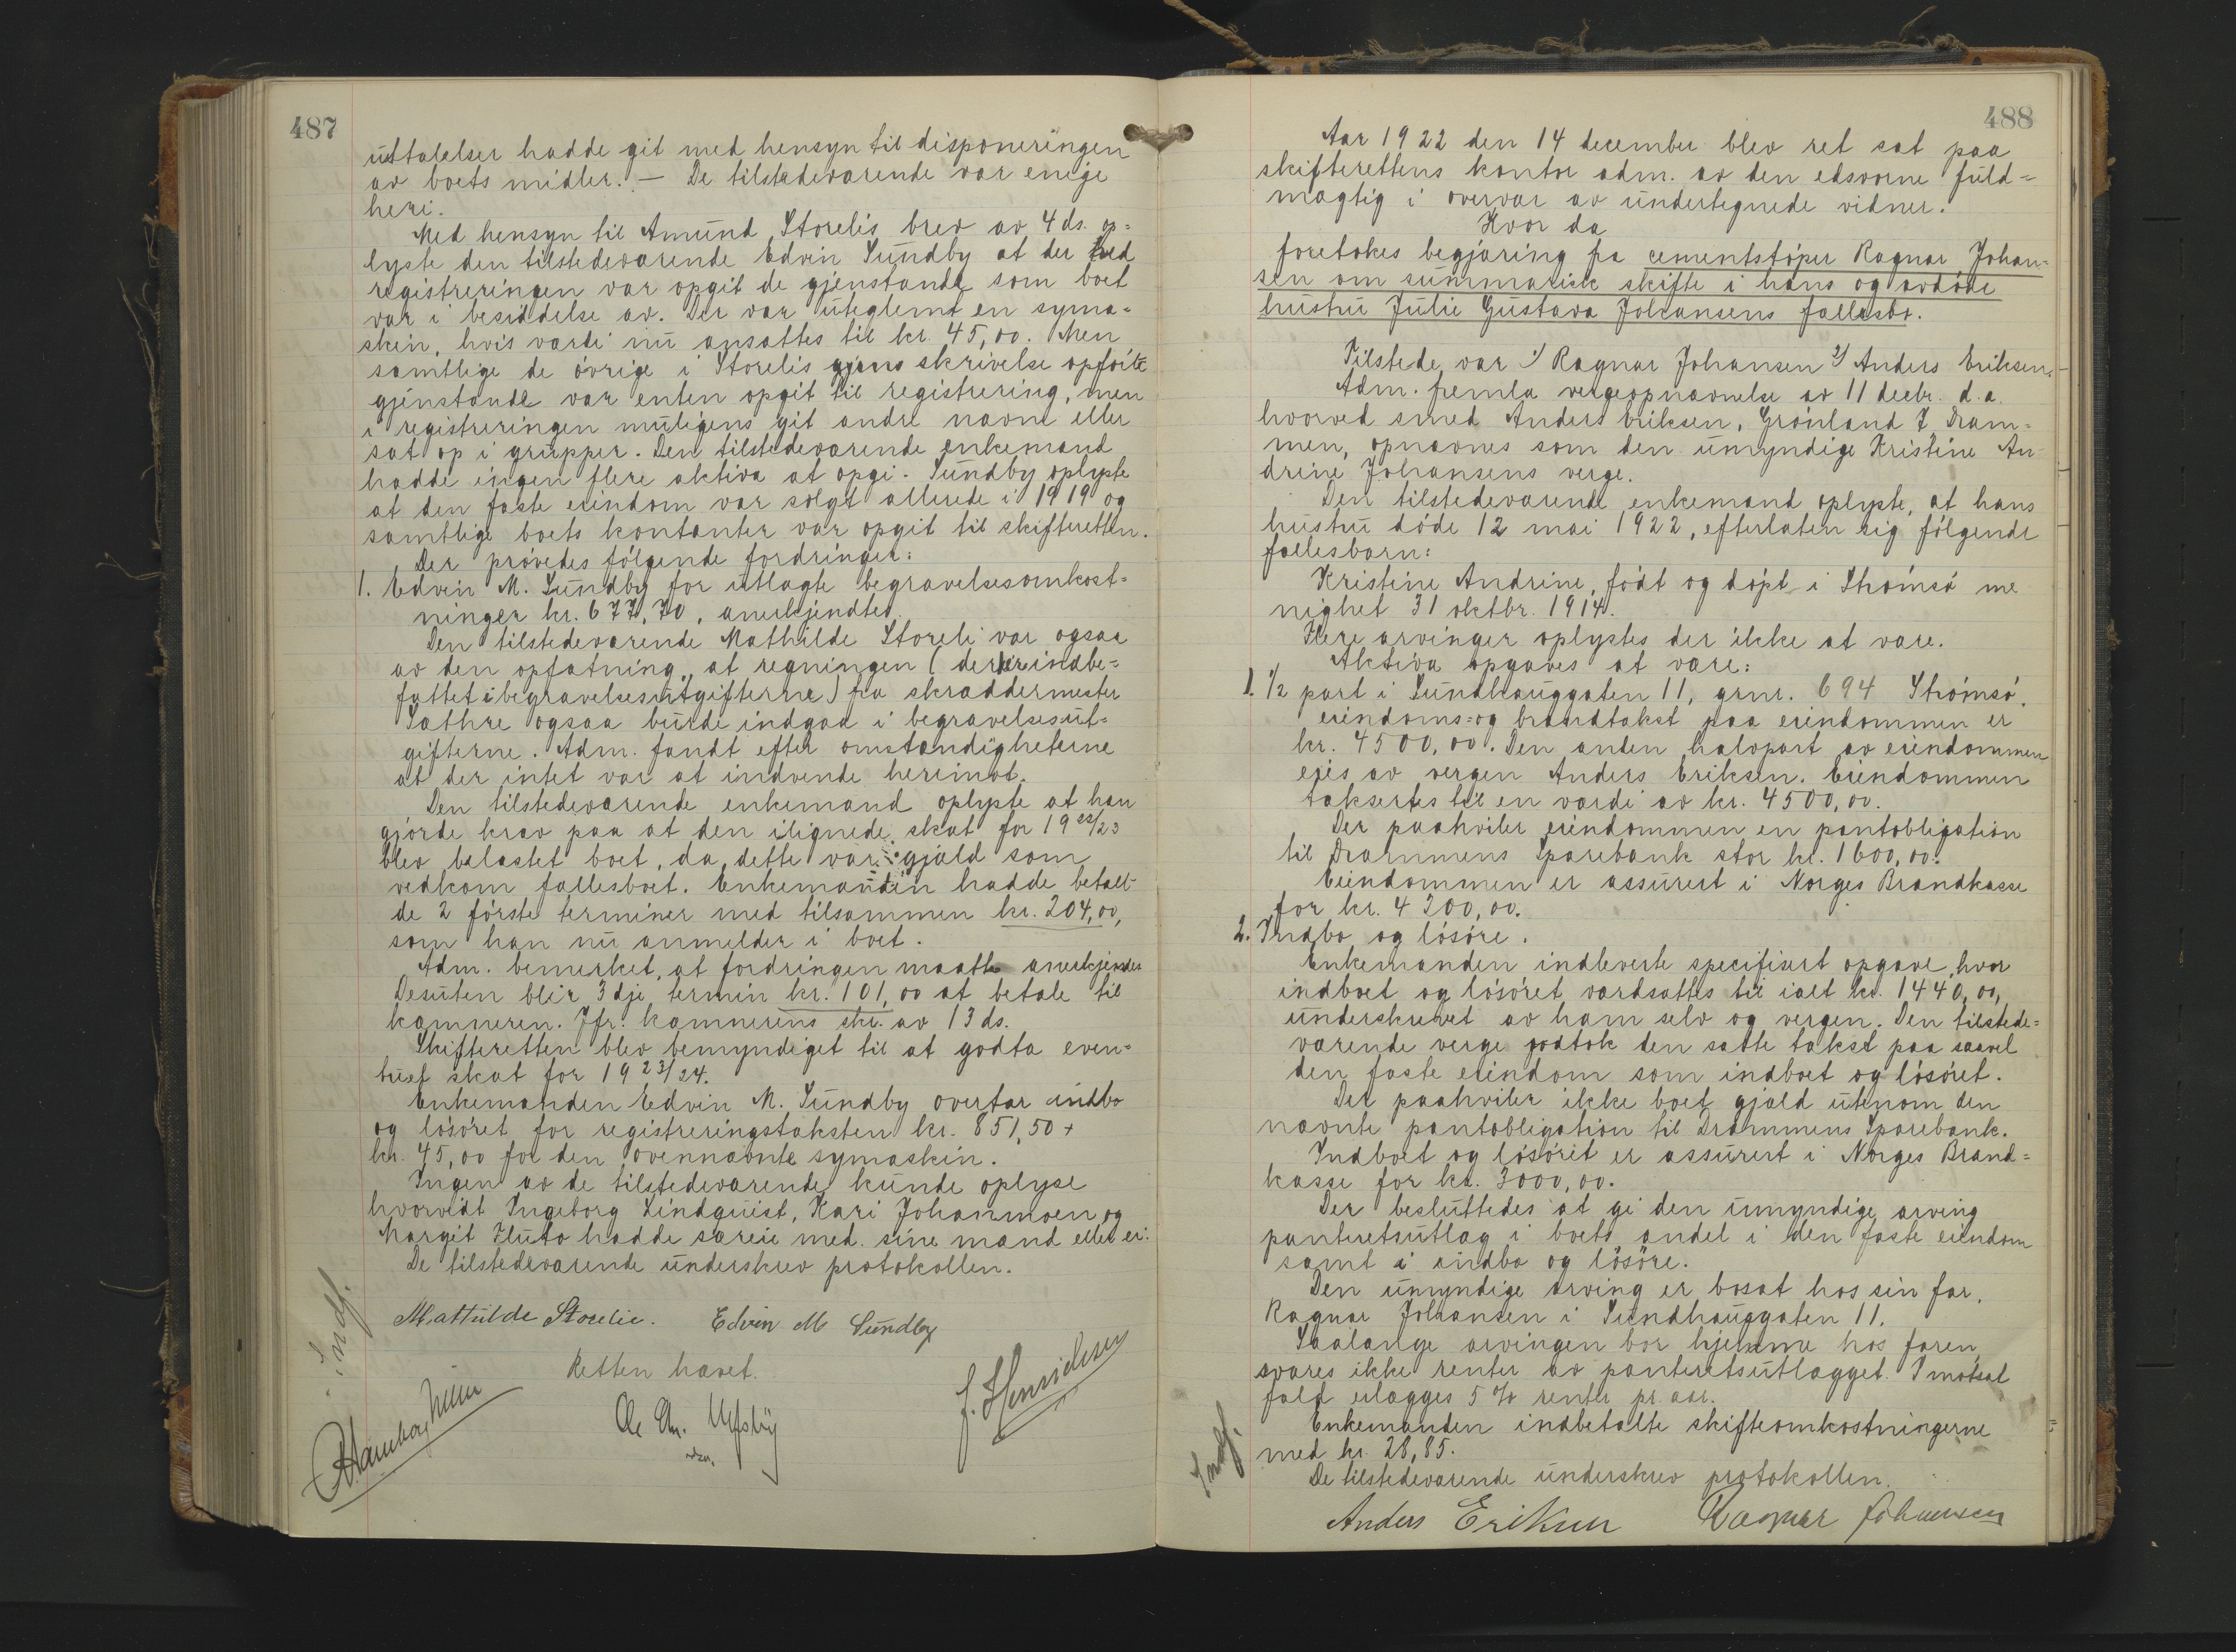 487
uttalelser hadde git med hensyn til disponeringen
av boets midler. — De tilstedeværende var enige
heri.
Med hensyn til Amund Storelis brev av 4 ds. op-
lyste den tilstedeværende Edvin Sundby at der ved
registreringen var opgit de gjenstande som boet
var i besiddelse av. Der var uteglemt en syma-
skin, hvis værdi nu ansattes til kr. 45,00. Men
samtlige de övrige i Storelis skrivelse opförte
gjenstande var enten opgit til registrering, men
i registreringen muligens git andre navne eller
sat op i grupper. Den tilstedeværende enkemand
hadde ingen flere aktiva at opgi. Sundby oplyste
at den faste eiendom var solgt allerede i 1919 og
samtlige boets kontanter var opgit til skifteretten.
Der prövedes fölgende fordringer:
1. Edvin M. Sundby for utlagte begravelsesomkost-
ninger kr. 677,70, anerkjendtes.
Den tilstedeværende Mathilde Storeli var ogsaa
av den opfatning, at regningen (der er indbe-
fattet i begravelsesutgifterne) fra skræddermester
Sæthre ogsaa burde indgaa i begravelsesut-
gifterne. Adm. fandt efter omstændigheterne
at der intet var at indvende herimot.
Den tilstedeværende enkemand oplyste at han
gjorde krav paa at den ilignede skat for 1922/23
blev belastet boet, da dette var gjæld som
vedkom fællesboet. Enkemanden hadde betalt
de 2 förste terminer med tilsammen kr. 204,00,
som han nu anmelder i boet.
Adm. bemerket, at fordringen maatte anerkjendes
Desuten blir 3dje termin kr. 101,00 at betale til
kæmneren. Jfr. kæmnerens skr. av 13 ds.
Skifteretten blev bemyndiget til at godta even-
tuel skat for 1923/24.
Enkemanden Edvin M. Sundby overtar indbo
og lösöret for registreringstaksten kr. 851,50 +
kr. 45,00 for den ovennævnte symaskin.
Ingen av de tilstedeværende kunde oplyse
hvorvidt Ingeborg Lindquist, Kari Johanmoen og
Margit Fluto hadde særeie med sine mænd eller ei.
De tilstedeværende underskrev protokollen.
Indf.
Mathilde Storelie. Edvin M Sundby
Retten hævet.
J. Henriksen
488
Aar 1922 den 14 december blev ret sat paa
skifterettens kontor adm. av den edsvorne fuld-
mægtig i overvær av undertegnede vidner.
Hvor da
foretokes begjæring fra cementstöper Ragnar Johan-
sen om summarisk skifte i hans og avdöde
hustru Julie Gustava Johansens fællesbo.
Tilstede var 1/ Ragnar Johansen 2/ Anders Eriksen.
Adm. fremla vergeopnævnelse av 11 decbr. d.a.
hvorved smed Anders Eriksen, Grönland 7 Dram-
men, opnævnes som den umyndige Kristine An-
drine Johansens verge.
Den tilstedeværende enkemand oplyste, at hans
hustru döde 12 mai 1922, efterlaten sig fölgende
fællesbarn:
Kristine Andrine, födt og döpt i Strömsö me
nighet 31 oktbr. 1914.
Flere arvinger oplystes der ikke at være.
Aktiva opgaves at være:
1. 1/2 part i Sundhauggaten 11, grnr. 694 Strömsö.
eiendoms- og brandtakst paa eiendommen er
kr. 4500,00. Den anden halvpart av eiendommen
eies av vergen Anders Eriksen. Eiendommen
taksertes til en værdi av kr. 4500,00.
Der paahviler eiendommen en pantobligation
til Drammens Sparebank stor kr. 1600,00.
Eiendommen er assurert i Norges Brandkasse
for kr. 4200,00.
2. Indbo og lösöre.
Enkemanden indleverte specifisert opgave, hvor
indboet og lösöret værdsættes til ialt kr. 1440,00,
underskrevet av ham selv og vergen. Den tilstede-
værende verge godtok den satte takst paa saavel
den faste eiendom som indboet og lösöret.
Der paahviler ikke boet gjæld utenom den
nævnte pantobligation til Drammens Sparebank.
Indboet og lösöret er assurert i Norges Brand-
kasse for kr. 3000,00.
Der besluttedes at gi den umyndige arving
panteretsutlæg i boets andel i den faste eiendom
samt i indbo og lösöre.
Den umyndige arving er bosat hos sin far,
Ragnar Johansen i Sundhauggaten 11.
Saalænge arvingen bor hjemme hos faren
svares ikke renter av panteretsutlægget. I motsat
fald erlægges 5 % renter pr. aar.
Enkemanden indbetalte skifteomkostningerne
med kr. 28,85.
Indf.
De tilstedeværende underskrev protokollen.
Anders Eriksen Ragnar Johansen